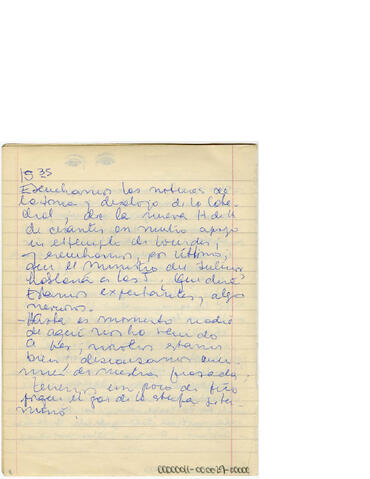 19 35
Escuchamos las noticias de
la toma y desalojo de la Cate-
dral, de la nueva H de H
de cesantes en
en el templo de Lourdes,
y escuchamos, por último,
que el Ministro del Interior
hablará a las
Estamos expectantes, algo
nerviosos.
- Hasta el momento nadie
de aquí nos ha venido
a ver, nosotros estamos
bien, descansamos
de nuestra frazada,
tenemos un poco de frío
porque el gas de la estufa se ter-
minó.